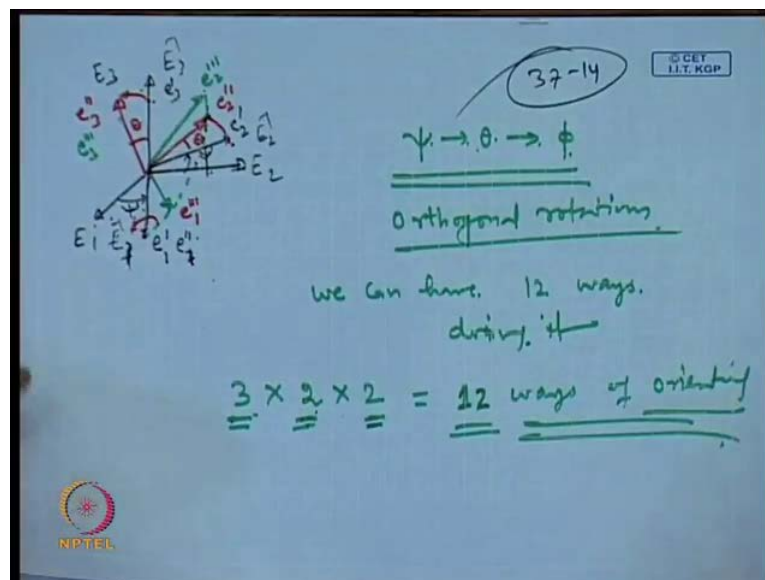 37-14
© CET
I.I.T. KGP
ψ → θ → φ
Orthogonal rotations
we can have 12 ways.
doing it
3 × 2 × 2 = 12 ways of orienting
E3
E2
e3''
e3'''
e3'
e2'''
e2''
e2'
Ê2
θ
θ
ψ
E1
e1'
e1''
e1'''
NPTEL